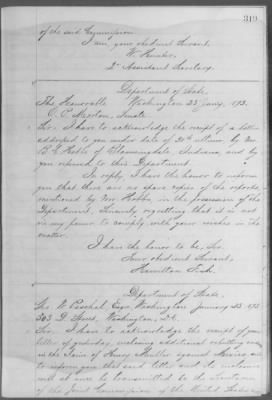 319
of the said Commission.
I am, your obedient Servant,
W. Hunter.
2d Assistant Secretary.
Department of State.
The Honorable Washington 23 Jany, 1873.
O. P. Morton, Senate.
Sir: I have to acknowledge the receipt of a letter
addressed to you under date of 30th ultimo, by Mr
B. C. Hobbs of Bloomingdale, Indiana, and by
you referred to this Department.
In reply I have the honor to inform
you that there are no spare copies of the reports,
mentioned by Mr Hobbs, in the possession of the
Department, sincerely regretting that it is not
in my power to comply with your wishes in the
matter.
I have the honor to be, Sir,
Your obedient Servant,
Hamilton Fish.
Department of State.
Geo. W. Paschal Esqr. Washington January 23. 1873
303 D Street, Washington, D.C.
Sir: I have to acknowledge the receipt of your
letter of yesterday, enclosing additional rebutting
in the claim of Henry Miller against Mexico and
to inform you that said letter and its enclosure
will at once be transmitted to the
of the Joint Commission of the United States